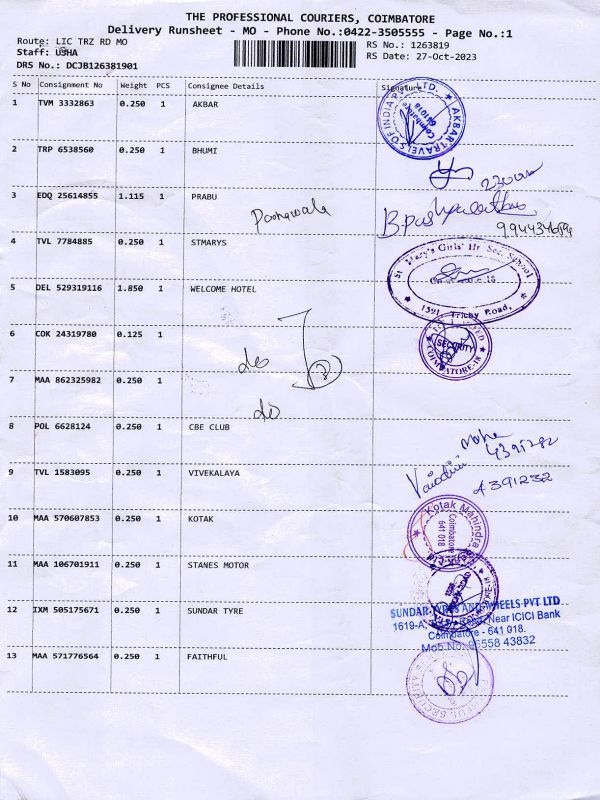 THE PROFESSIONAL COURIERS, COIMBATORE
Delivery Runsheet - MO - Phone No.:0422-3505555 - Page No.:1
Route: LIC TRZ RD MO
RS No.: 1263819
Staff: USHA
RS Date: 27-Oct-2023
DRS No.: DCJB126381901
S No Consignment No Weight PCS Consignee Details Signature
1 TVM 3332863 0.250 1 AKBAR
AKBAR TRAVELS OF INDIA PVT. LTD.
Coimbatore
641018
2 TRP 6538560 0.250 1 BHUMI
3 EDQ 25614855 1.115 1 PRABU
Poonawala
4 TVL 7784885 0.250 1 STMARYS
St. Mary's Girls' Hr. Sec. School
1591, Trichy Road,
5 DEL 529319116 1.850 1 WELCOME HOTEL
SECURITY
COIMBATORE-18
6 COK 24319780 0.125 1
do
7 MAA 862325982 0.250 1
do
8 POL 6628124 0.250 1 CBE CLUB
4391282
9 TVL 1583095 0.250 1 VIVEKALAYA
4391232
10 MAA 570607853 0.250 1 KOTAK
Kotak Mahindra
Coimbatore
641 018
11 MAA 106701911 0.250 1 STANES MOTOR
12 IXM 505175671 0.250 1 SUNDAR TYRE
SUNDAR TYRES AND WHEELS PVT LTD
1619-A, Road, Near ICICI Bank
Coimbatore - 641 018.
Mob.No: 96558 43832
13 MAA 571776564 0.250 1 FAITHFUL